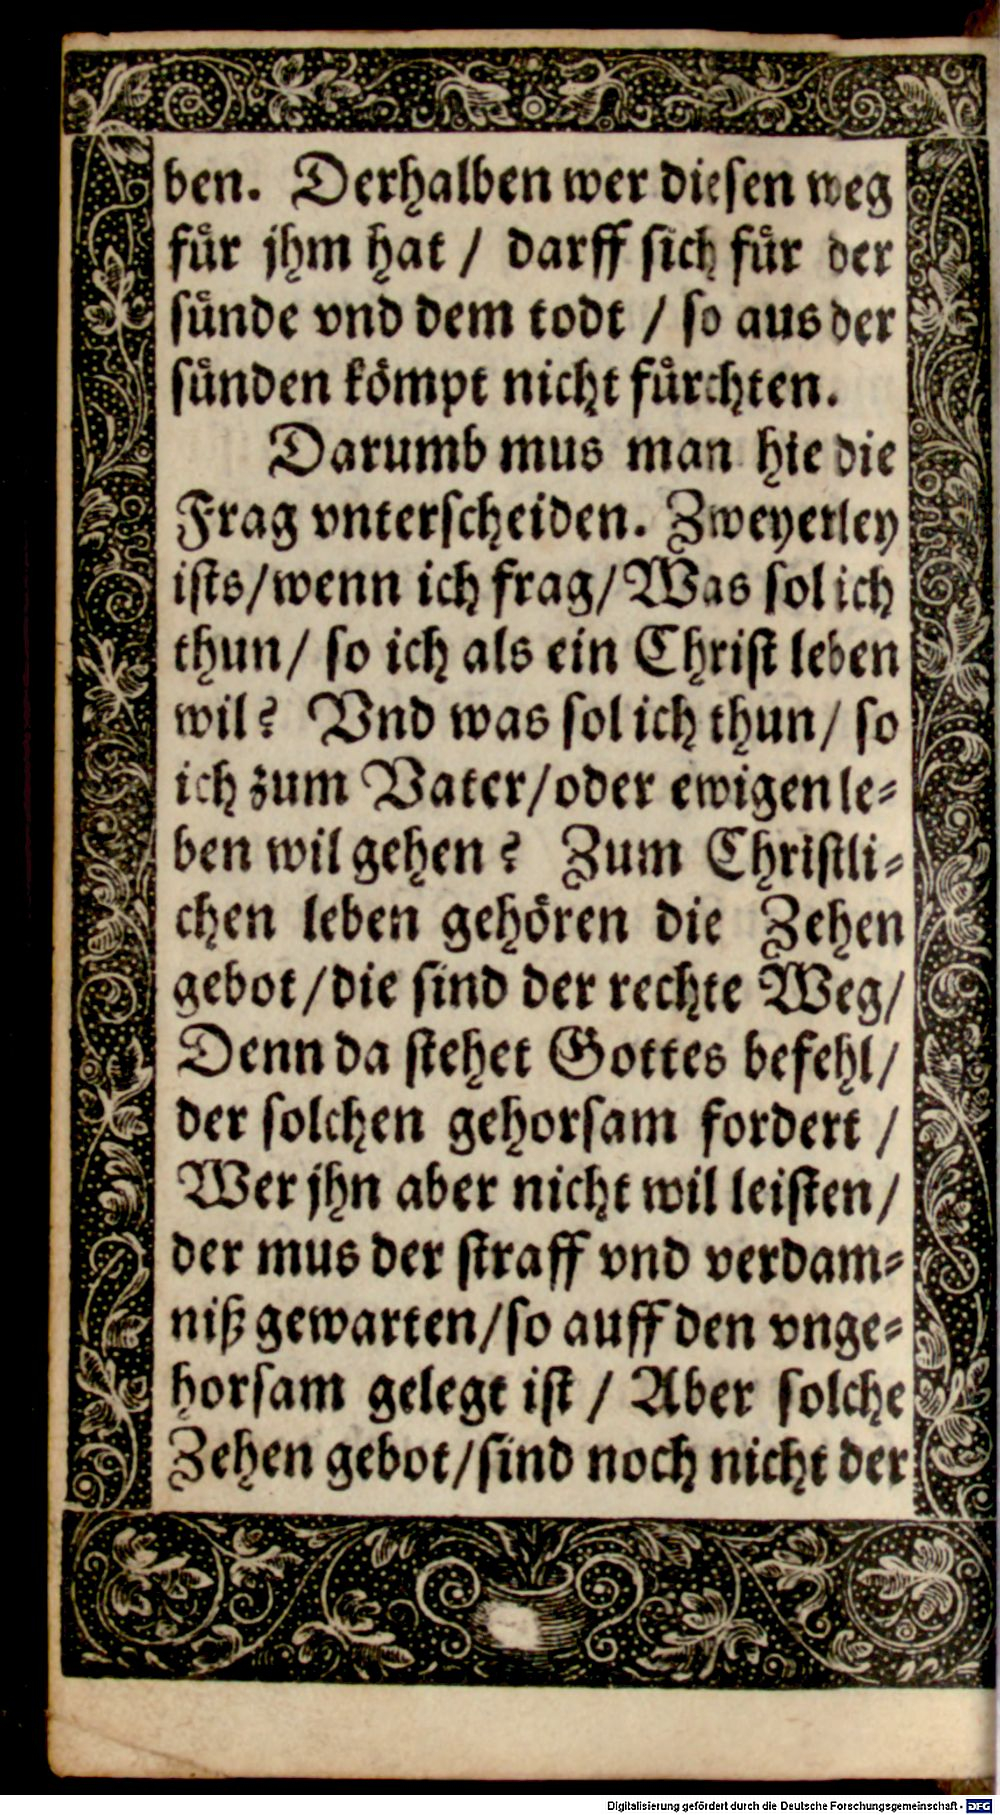 ben. Derhalben wer diesen weg
fuͤr jhm hat / darff sich fuͤr der
suͤnde vnd dem todt / so aus der
suͤnden koͤmpt nicht fuͤrchten.
Darumb mus man hie die
Frag vnterscheiden. Zweyerley
ists/wenn ich frag/Was sol ich
thun/ so ich als ein Christ leben
wil? Vnd was sol ich thun/ so
ich zum Vater/oder ewigen le⸗
ben wil gehen? Zum Christli⸗
chen leben gehoͤren die Zehen
gebot/die sind der rechte Weg/
Denn da stehet Gottes befehl/
der solchen gehorsam fordert /
Wer jhn aber nicht wil leisten/
der mus der straff vnd verdam⸗
niß gewarten/so auff den vnge⸗
horsam gelegt ist / Aber solche
Zehen gebot/sind noch nicht der
Digitalisierung gefördert durch die Deutsche Forschungsgemeinschaft - DFG